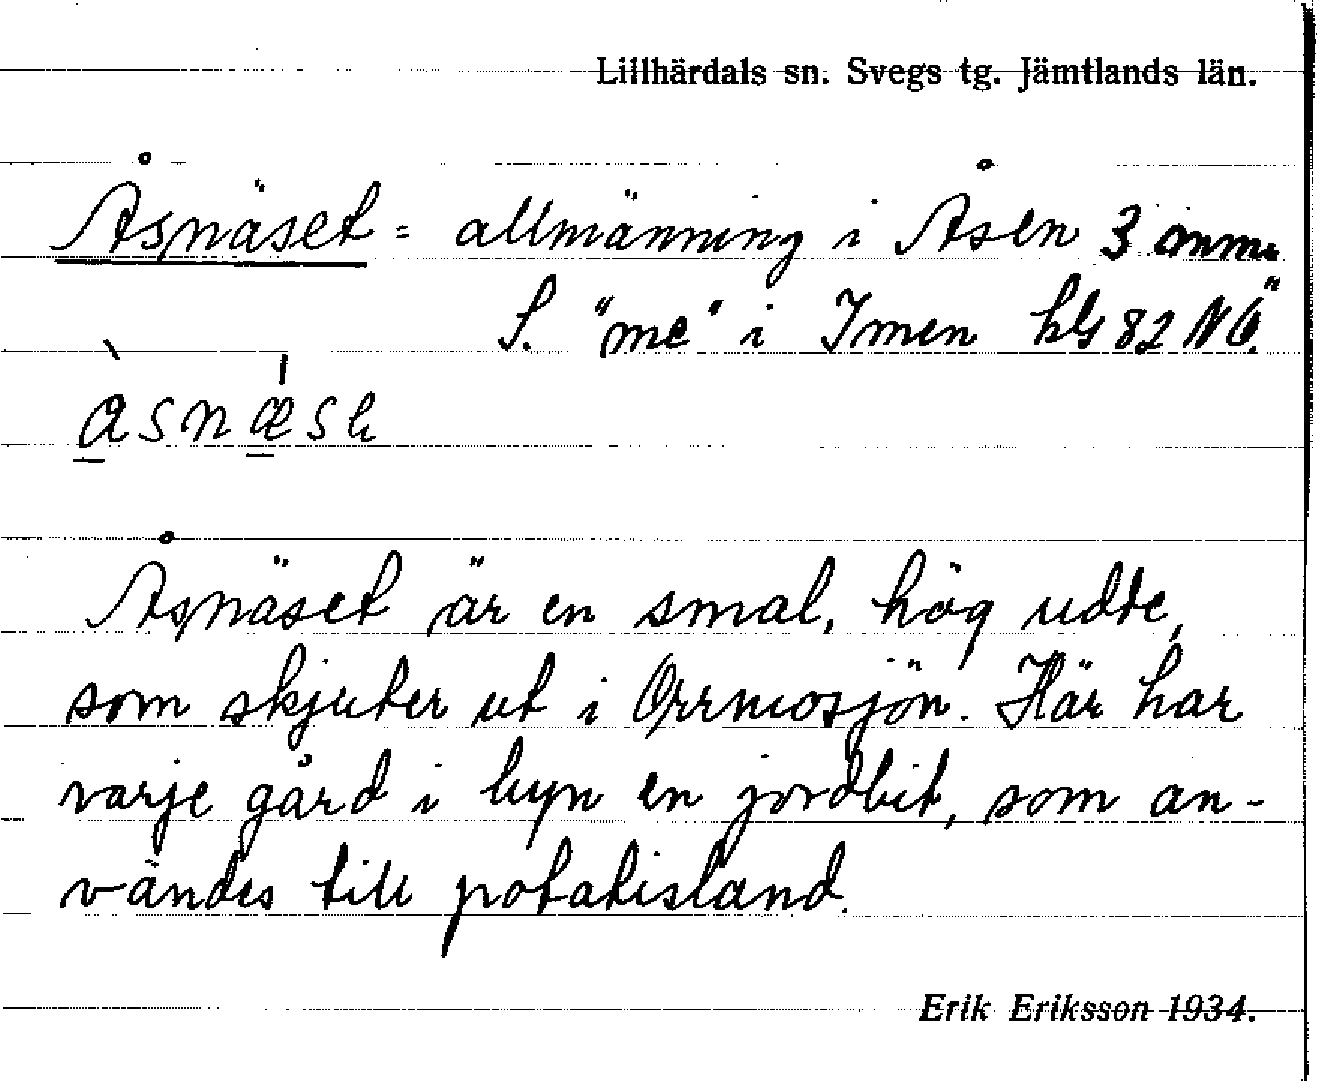 Lillhärdals sn. Svegs tg. Jämtlands län.
Åsnäset = allmänning i Åsen 3 mm.
S. "me" i Imen kbl 82 NO."
åsnæsh
Åsnäset är en smal, hög udde,
som skjuter ut i Orrmosjön. Här har
varje gård i byn en jordbit, som an-
vändes till potatisland.
Erik Eriksson 1934.